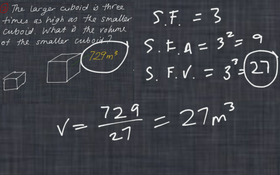 The larger cuboid is three
times as high as the smaller
cuboid. What is the volume
of the smaller cuboid?
729m³
S.F. = 3
S.F.A = 3² = 9
S.F.V. = 3³ = 27
V = 729/27 = 27m³